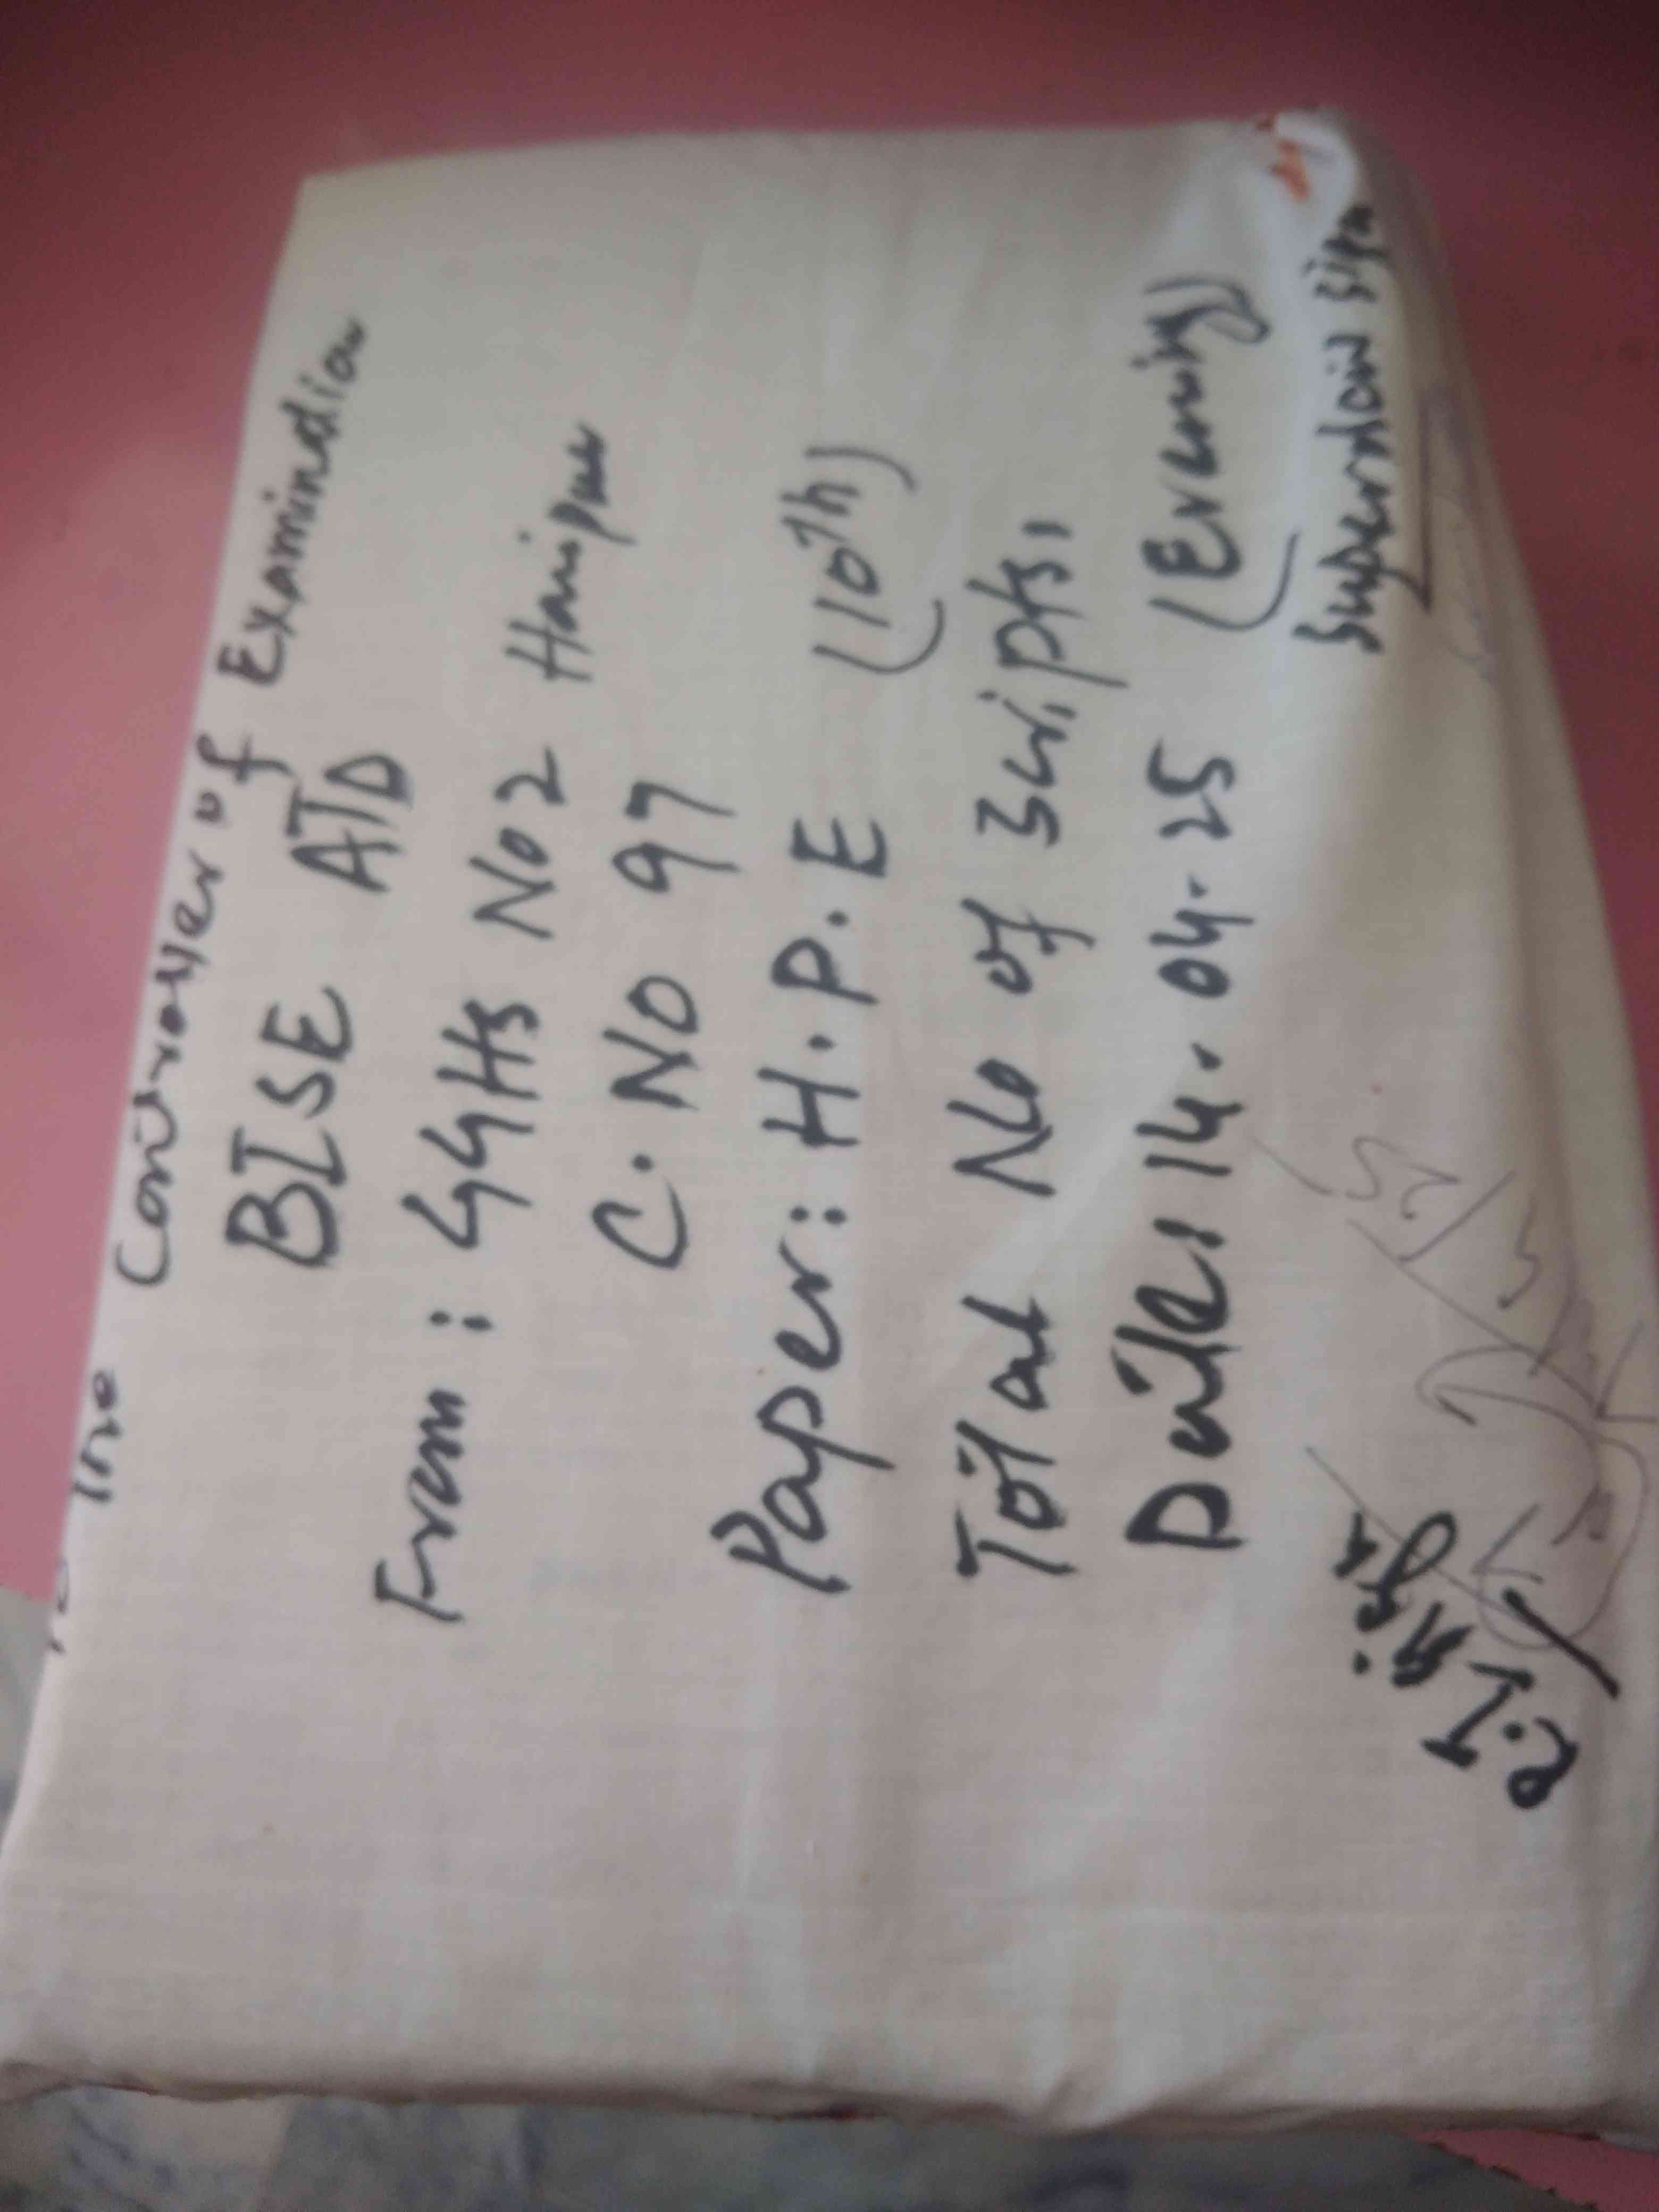 To The Controller of Examination
BISE ATD
From : GGHS No 2 Haripur
C. No 97
Paper : H.P.E (10th)
Total No of Scripts,
Date, 14.04.25 (Evening)